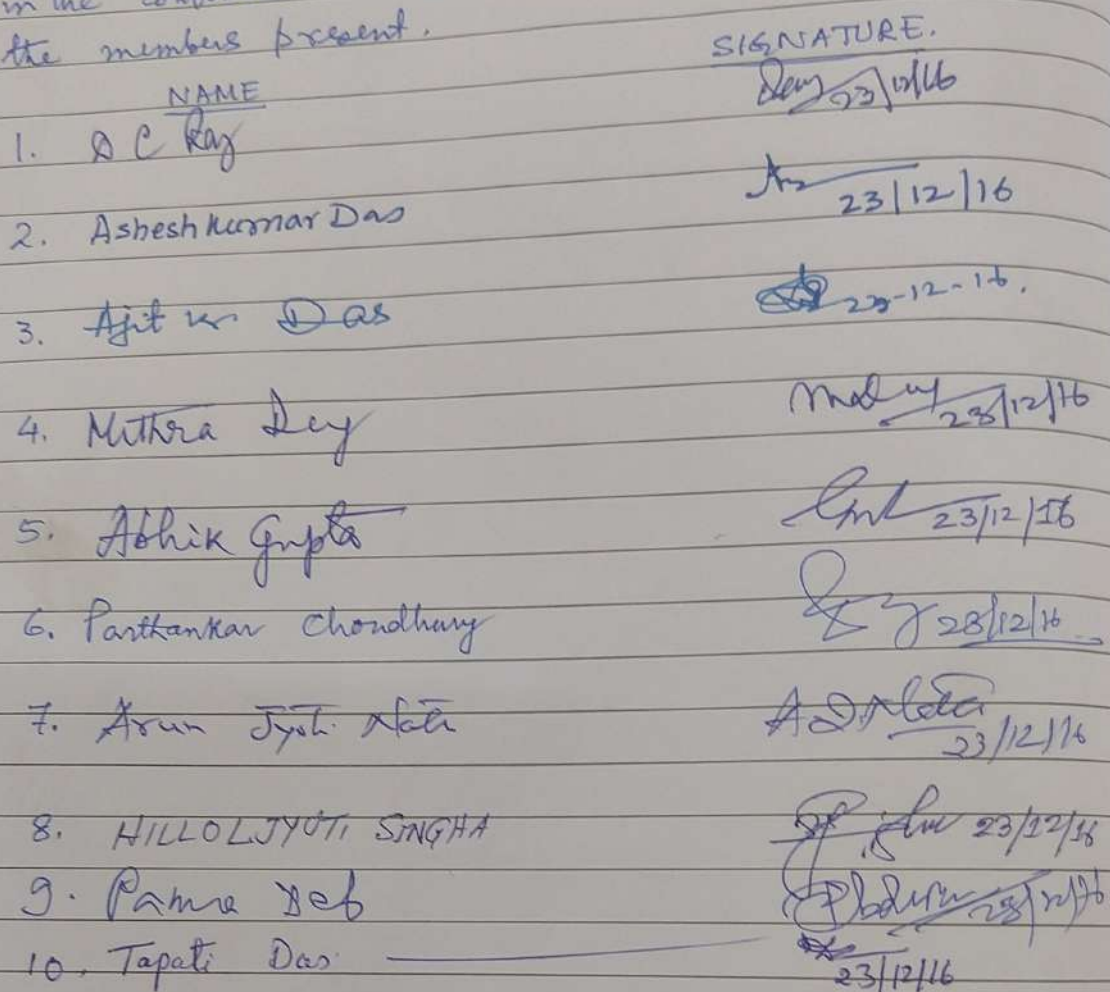 in the
the members present.
NAME SIGNATURE.
1. D C Ray 23/12/16
2. Ashesh Kumar Das 23/12/16
3. Ajit Kr Das 23-12-16.
4. Mithra Dey 23/12/16
5. Abhik Gupta 23/12/16
6. Parthankar Choudhury 23/12/16
7. Arun Jyoti Nath 23/12/16
8. HILLOLJYOTI SINGHA 23/12/16
9. Panna Deb 23/12/16
10. Tapati Das 23/12/16